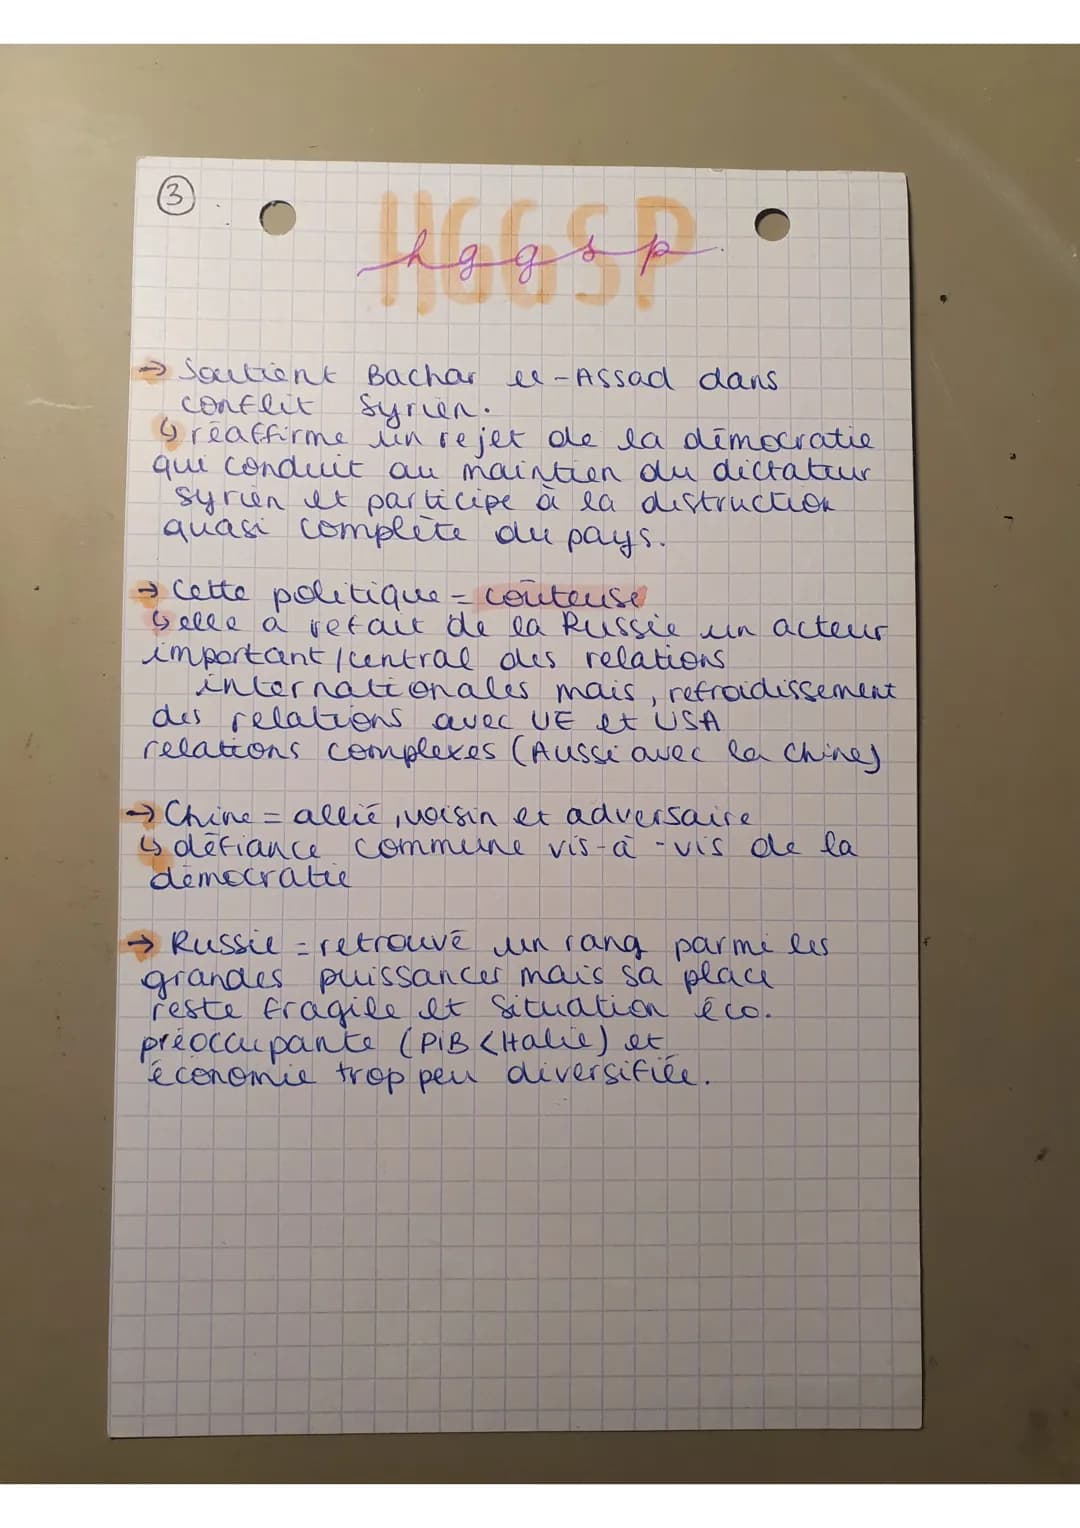 3
HGGSP
hggsp
→ Soutient Bachar el-Assad dans
conflit syrien.
↳ réaffirme un rejet de la démocratie
qui conduit au maintien du dictateur
syrien et participe à la distruction
quasi complète du pays.
→ Cette politique = coûteuse
↳ elle a refait de la Russie un acteur
important/central des relations
internationales mais, refroidissement
des relations avec UE et USA
relations complexes (Aussi avec la Chine)
→ Chine = allié, voisin et adversaire
↳ défiance commune vis-à-vis de la
démocratie
→ Russie = retrouvé un rang parmi les
grandes puissances mais sa place
reste fragile et situation éco.
préoccupante (PiB < Italie) et
économie trop peu diversifiée.